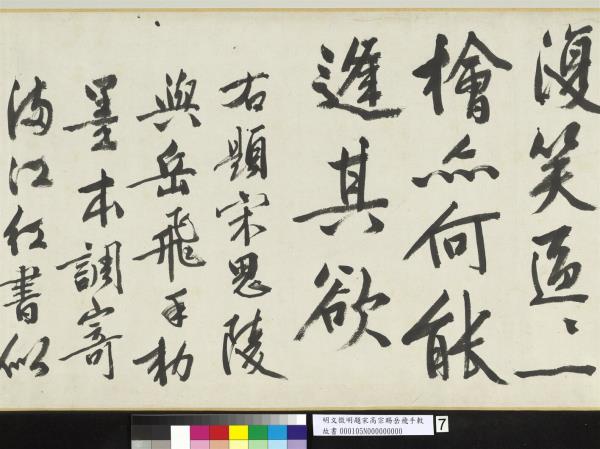 復笑區〻一
檜亦何能
逢其欲
右題宋思陵
與岳飛手勑
墨本調寄
滿江紅書似
明文徵明題宋高宗賜岳飛手敕
故書 000105N000000000
7